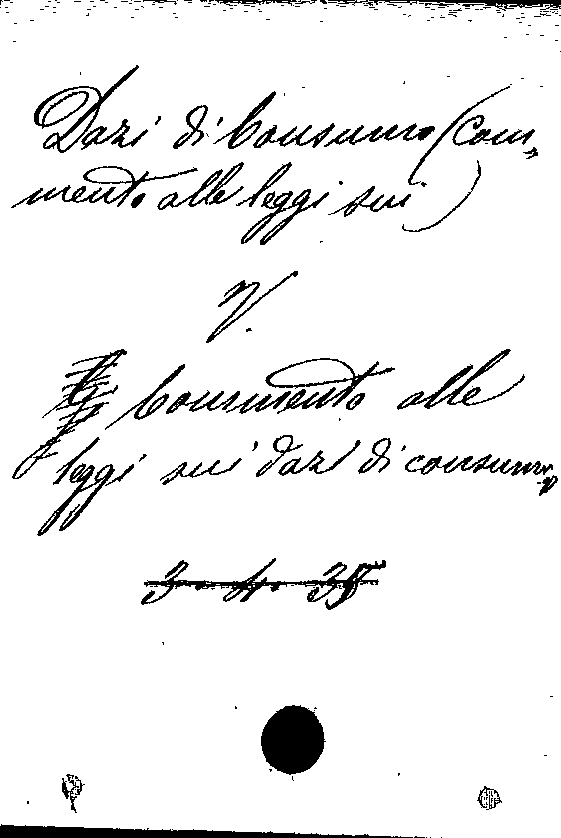 Dazi di Consumo (Com„
mento alle leggi sui)
V.
Commento alle
leggi sui dazi di consumo
3. 4. 35